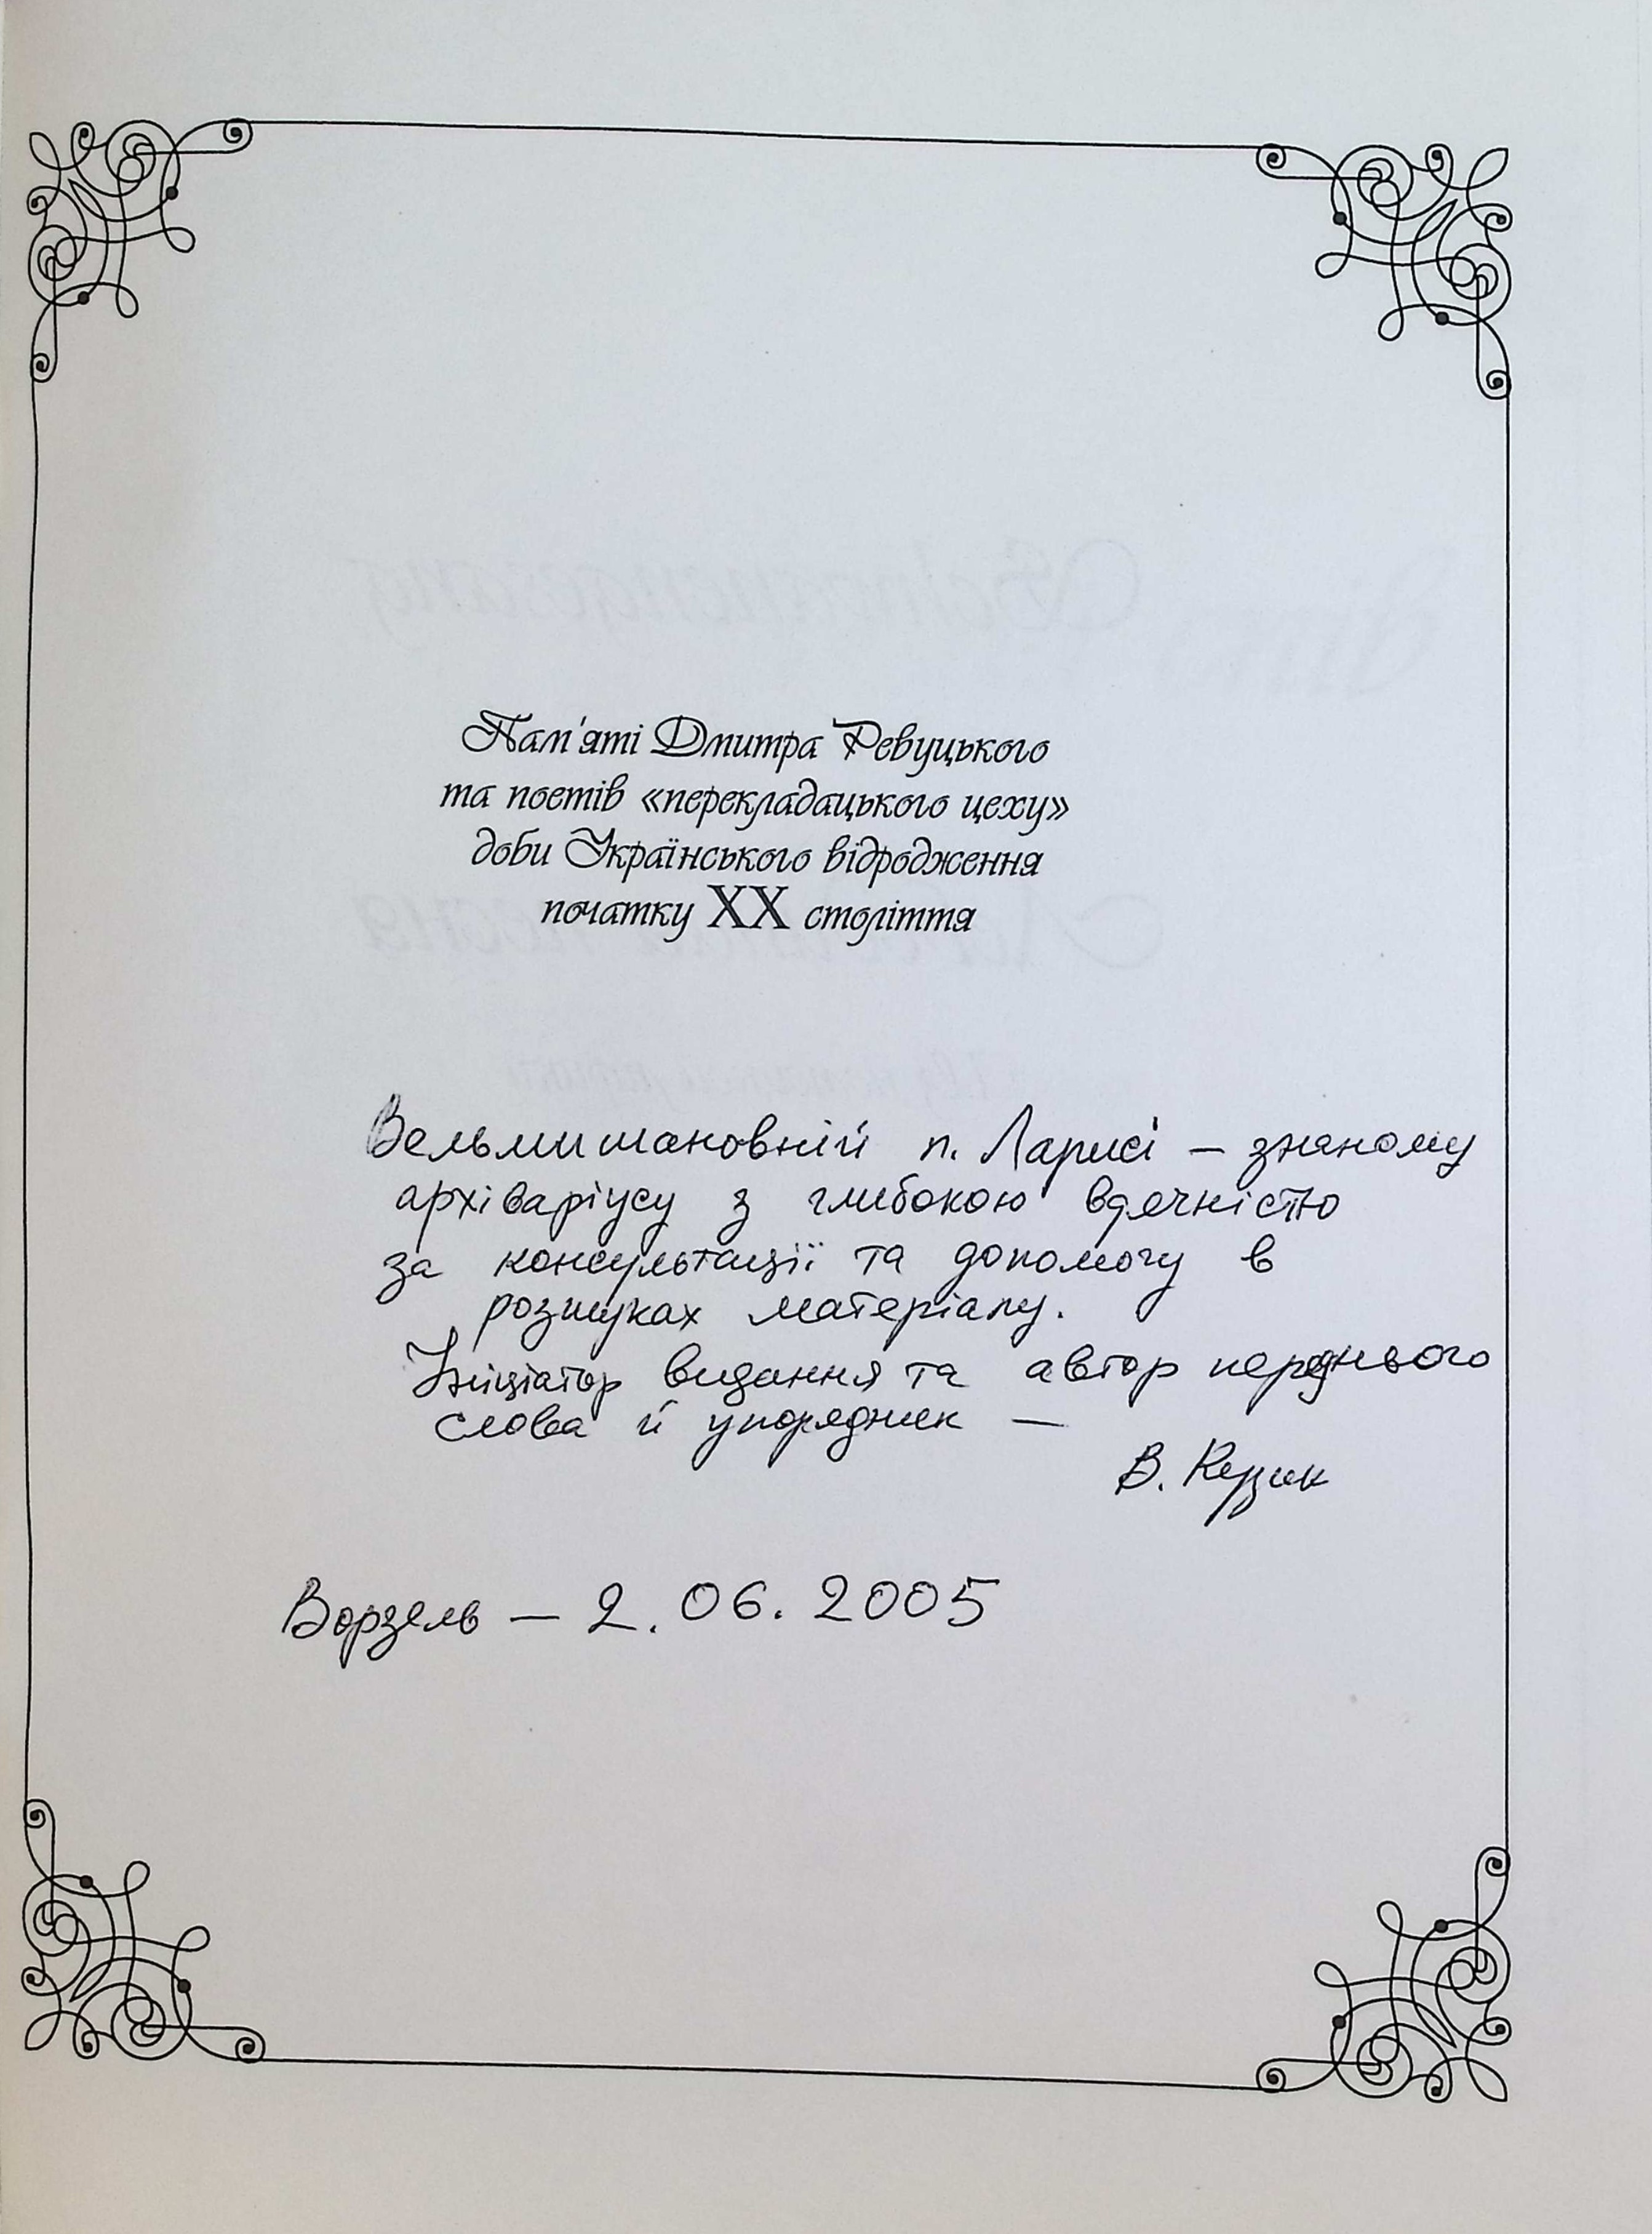 Пам'яті Дмитра Ревуцького
та поетів «перекладацького цеху»
доби Українського відродження
початку XX століття
Вельмишановній п. Ларисі – знаному
архіваріусу з глибокою вдячністю
за консультації та допомогу в
розшуках матеріалу.
Ініціатор видання та автор переднього
слова й упорядник –
В. Кузик
Ворзель – 2. 06. 2005